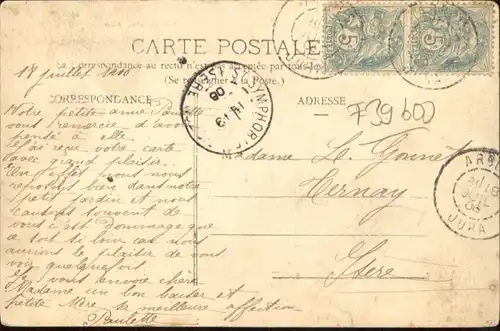 CARTE POSTALE
La Correspondance au recto n'est pas acceptée par tous les
(Se renseigner à la Poste)
CORRESPONDANCE
ADRESSE
18 juillet
Votre petite amie Paulette
vous remercie d'avoir
pensé à elle
J'ai reçu votre carte
avec grand plaisir.
En effet nous nous
reposons bien dans notre
petit jardin et nous
causons souvent de
vous c'est dommage que
si loin car nous
aurions le plaisir de vous
voir quelquefois
Je vous envoie chère
Madame un bon baiser et
petite Mère sa meilleure affection
Paulette
739600
Madame L. Gonnet
Ternay
Isère
SYMPHORIEN
ISERE
19
08
JURA
5
5